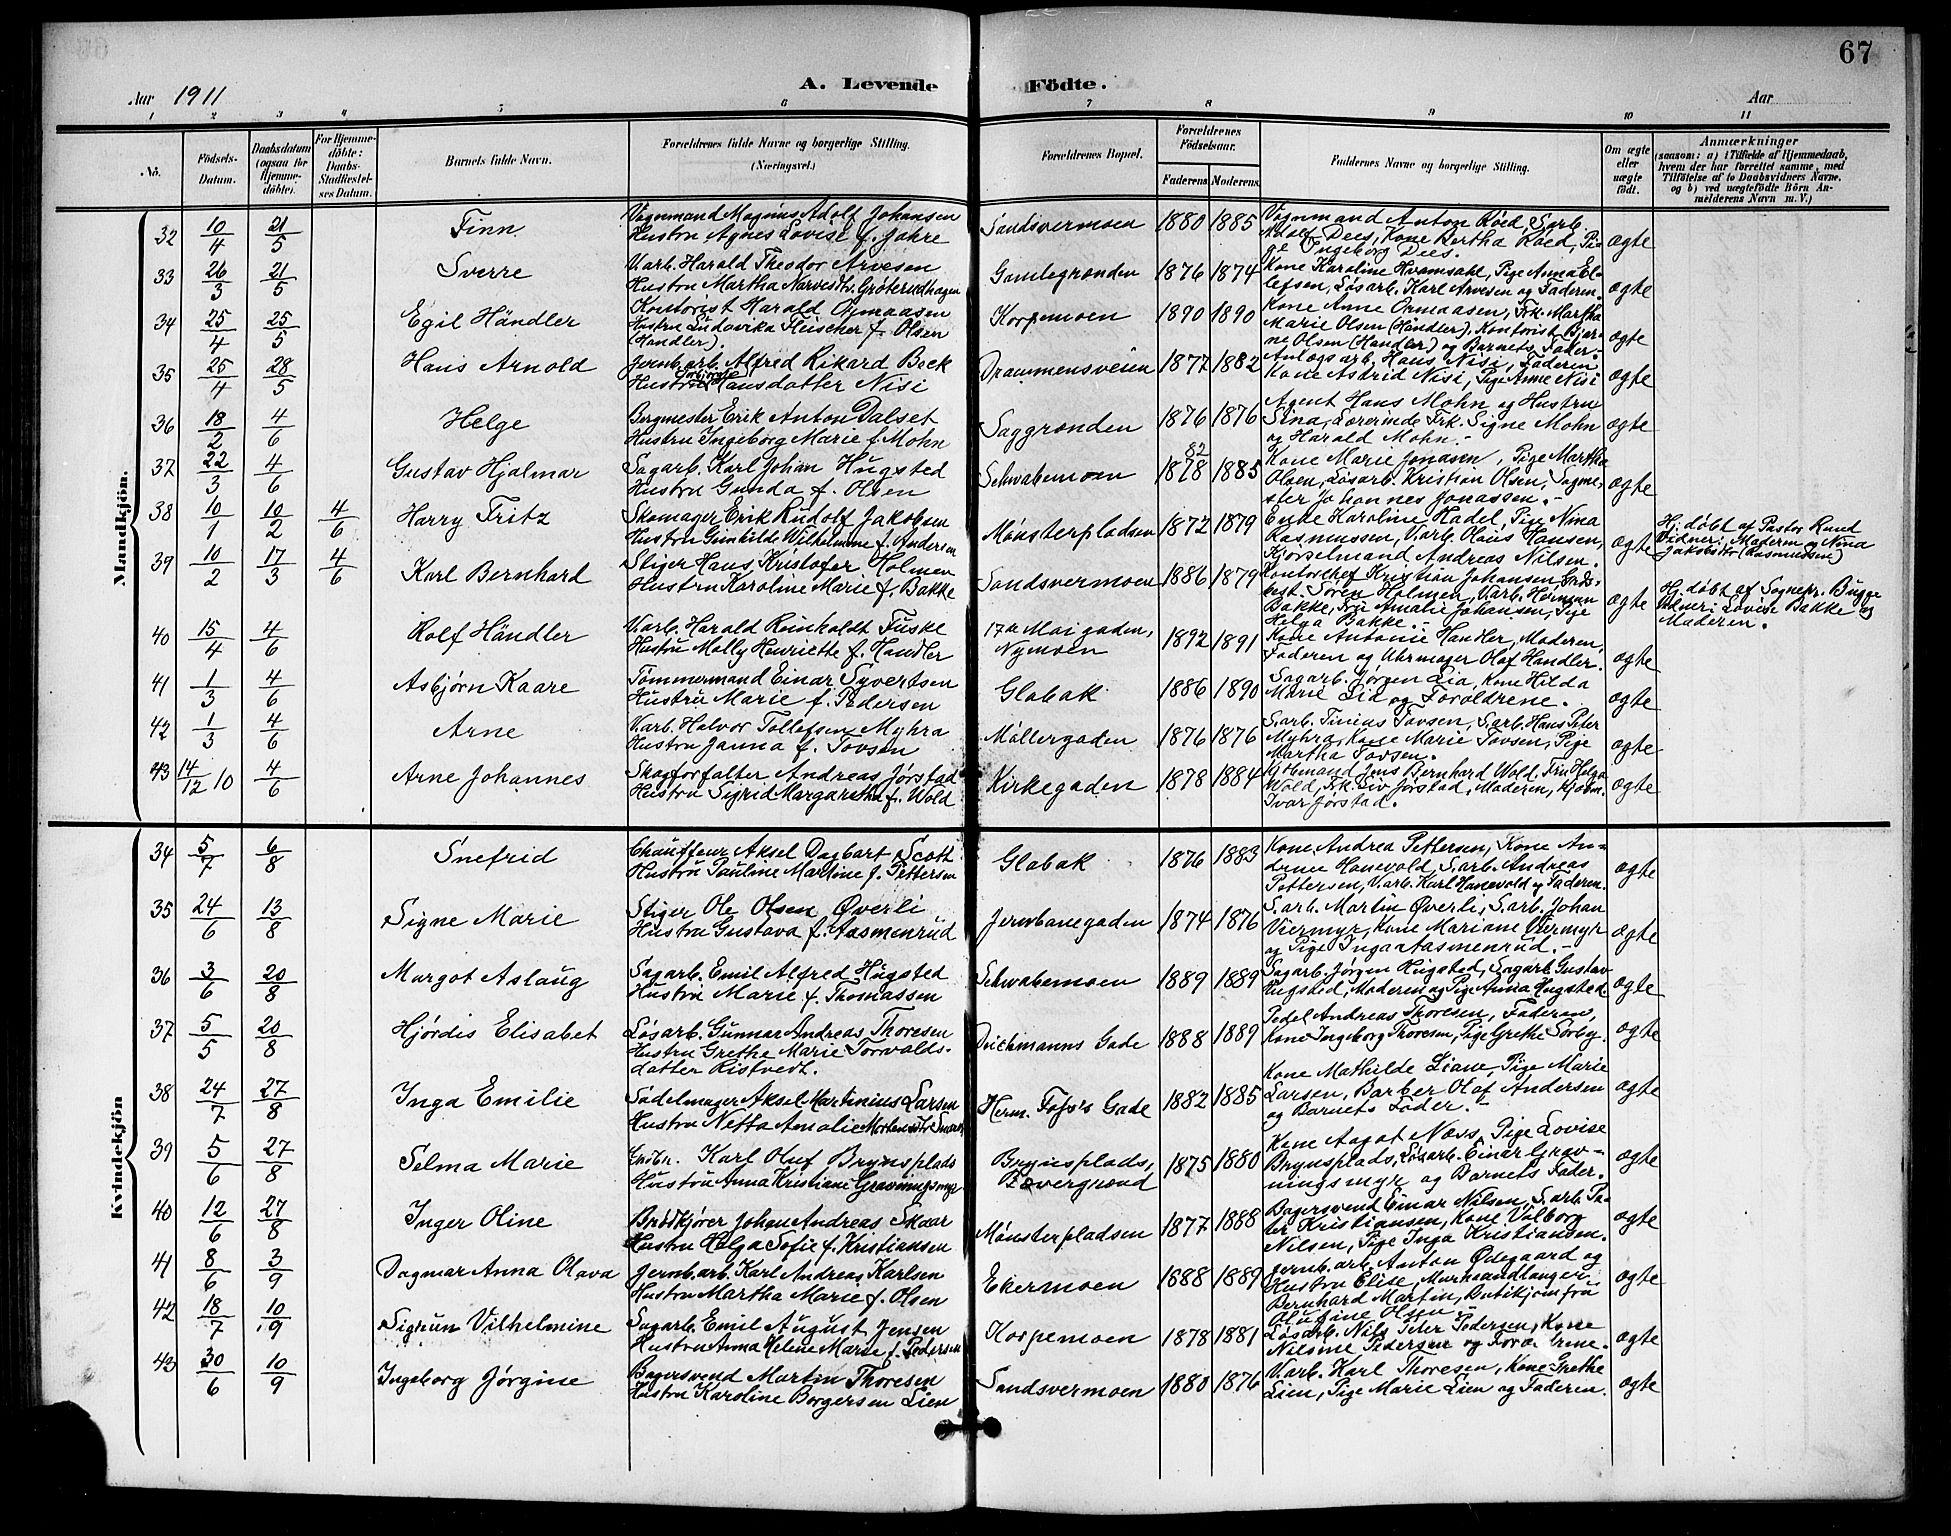 67
Aar 1911
A. Levende Födte.
Aar
1 2 3 4 5 6 7 8 9 10 11
No.
Födsels-Datum.
Daabsdatum (ogsaa for Hjemme-döbte).
For Hjemme-döbte: Daabs-Stadfæstel-ses Datum.
Barnets fulde Navn.
Forældrenes fulde Navne og borgerlige Stilling. (Næringsvei.)
Forældrenes Bopæl.
Forældrenes Födselsaar.
Faderens. Moderens.
Faddernes Navne og borgerlige Stilling.
Om ægte eller uægte födt.
Anmærkninger
(saasom: a) i Tilfælde af Hjemmedaab,
hvem der har forrettet samme, med
Tilföielse af to Daabsvidners Navne,
og b) ved uægtefödte Börn An-
melderens Navn m. V.)
Mandkjön.
32 10/4 21/5 Finn Vognmand Magnus Adolf Johansen Sandsvermoen 1880 1885 Vognmand Anton Røed, S.arb. ægte
Hustru Agnes Lovise f. Jahre Adolf Dees, Kone Bertha Røed, Pi-
ge Ingeborg Dees.
33 26/3 21/5 Sverre V.arb. Harald Theodor Arvesen Gamlegrønden 1876 1874 Kone Karoline Hvamsahl, Pige Anna El- ægte
Hustru Martha Narvesdtr. Grøterudhagen lefsen, Løsarb. Karl Arvesen og Faderen.
34 25/4 25/5 Egil Händler Kontorist Harald Ormaasen Korpemoen 1890 1890 Kone Anne Ormaasen, Frk. Martha ægte
Hustru Ludovika Fleischer f. Olsen Marie Olsen (Händler), Kontorist Bjar-
(Händler). ne Olsen (Händler) og Barnets Fader.
35 25/4 28/5 Hans Arnold Jernb.arb. Alfred Rikard Bock Drammensveien 1877 1882 Anlægsarb. Hans Nisi, Faderen ægte
Hustru Hansdatter Nisi Kone Astrid Nisi, Pige Anne Nisi
36 18/2 4/6 Helge Bergmester Erik Anton Dalset Saggrønden 1876 1876 Agent Hans Mohn og Hustru ægte
Hustru Ingeborg Marie f. Mohn Sina, Lærerinde Frk. Signe Mohn
og Harald Mohn.
37 22/3 4/6 Gustav Hjalmar Sagarb. Karl Johan Hugsted Schwabemoen 82 1878 1885 Kone Marie Jonasen, Pige Martha ægte
Hustru Gunda f. Olsen Olsen, Løsarb. Kristian Olsen, Sagme-
ster Johannes Jonassen.
38 10/1 10/2 4/6 Harry Fritz Skomager Erik Rudolf Jakobsen Mønsterpladsen 1872 1879 Enke Karoline Hadel, Pige Nina ægte Hj. døbt af Pastor Rund
Hustru Gunhilde Wilhelmine f. Andersen Rasmussen, V.arb. Olaus Hansen, Vidner: Moderen og Nina
Kjørselmand Andreas Nilsen. Jakobsdtr (Rasmussen)
39 10/2 17/3 4/6 Karl Bernhard Stiger Hans Kristofer Holmen Sandsvermoen 1886 1879 Kontorchef Kristian Johansen, ægte Hj. døbt af Sognepr. Bugge
Hustru Karoline Marie f. Bakke Søren Holmen, V.arb. Herman Vidner: Lovise Bakke og
Bakke, Fru Amalie Johansen, Pige Moderen.
Helga Bakke.
40 15/4 4/6 Rolf Händler V.arb. Harald Reinholdt Fuske 17de Maigaden, 1892 1891 Kone Antonie Händler, Moderen, ægte
Hustru Molly Henriette f. Händler Nymoen Faderen og Uhrmager Olaf Händler.
41 1/3 4/6 Asbjørn Kaare Tømmermand Einar Syvertsen Glabak 1886 1890 Sagarb. Jørgen Lia, Kone Hilda ægte
Hustru Marie f. Pedersen Marie Lia og Forældrene.
42 1/3 4/6 Arne V.arb. Halvor Tollefsen Myhra Møllergaden 1876 1876 S.arb. Tinius Tovsen, S.arb. Hans Peter ægte
Hustru Janna f. Tovsen Myhra, Kone Marie Tovsen, Pige
Martha Tovsen.
43 14/12 10 4/6 Arne Johannes Skogforfalter Andreas Jørstad Kirkegaden 1878 1884 Kjøbmand Jens Bernhard Wold, Fru Helga ægte
Hustru Sigrid Margaretha f. Wold Wold, Frk. Siv Jørstad, Moderen, Kjøbm.
Ivar Jørstad.
Kvindekjön
34 5/7 6/8 Snefrid Chauffeur Aksel Dagbart Scott Glabak 1876 1883 Kone Andrea Pettersen, Kone An- ægte
Hustru Pauline Martine f. Pettersen Hanevold, S.arb. Andreas
Pettersen, V.arb. Karl Hanevold og Faderen.
35 24/6 13/8 Signe Marie Stiger Ole Olsen Øverli Jernbanegaden 1874 1876 S.arb. Martin Øverli, S.arb. Johan ægte
Hustru Gustava f. Aasmenrud Viermyr, Kone Mariane Viermyr
og Pige Inga Aasmenrud.
36 3/6 20/8 Margot Aslaug Sagarb. Emil Alfred Hugsted Schwabemoen 1889 1889 Sagarb. Jørgen Hugsted, Sagarb. Gustav ægte
Hustru Marie f. Thomassen Hugsted, Moderen og Pige Anna Hugsted
37 5/5 20/8 Hjørdis Elisabet Løsarb. Gunnar Andreas Thoresen Dichmanns Gade 1888 1889 Pedel Andreas Thoresen, Faderen, ægte
Hustru Grethe Marie Torvalds- Kone Ingeborg Thoresen, Pige Grethe Sørby.
datter Ristvedt.
38 24/7 27/8 Inga Emilie Sadelmager Aksel Martinius Larsen Herm. Foss's Gade 1882 1885 Kone Mathilde Liane, Pige Marie ægte
Hustru Netta Amalie Larsen, Barber Olaf Andersen
og Barnets Fader.
39 5/6 27/8 Selma Marie Gndbr. Karl Oluf Brynsplads Brynsplads, 1875 1880 Kone Aagot Næss, Pige Lovise ægte
Hustru Anna Kristiane Gravningsmyr Tovergrønd Brynsplads, Løsarb. Einar Grav-
ningsmyr og Barnets Fader.
40 12/6 27/8 Inger Oline Brødkjører Johan Andreas Skaar Mønsterpladsen 1877 1888 Bagersvend Einar Nilsen, S.arb. Pe- ægte
Hustru Helga Sofie f. Kristiansen ter Kristiansen, Kone Valborg
Nilsen, Pige Inga Kristiansen.
41 8/6 3/9 Dagmar Anna Olava Jernb.arb. Karl Andreas Karlsen Ekermoen 1888 1889 Jernb.arb. Anton Ødegaard og ægte
Hustru Martha Marie f. Olsen Hustru Elise, Murhaandlanger
Bernhard Martin, Butikjomfru
Olufine Olsen.
42 18/7 10/9 Sigrun Vilhelmine Sagarb. Emil August Jensen Korpemoen 1878 1881 Løsarb. Nils Peter Pedersen, Kone ægte
Hustru Anna Helene Marie f. Pedersen Nilsine Pedersen og Forældrene.
43 30/6 10/9 Ingeborg Jørgine Bagersvend Martin Thoresen Sandsvermoen 1880 1876 V.arb. Karl Thoresen, Kone Grethe ægte
Hustru Karoline Borgersen Lien Lien, Pige Marie Lien og Faderen.